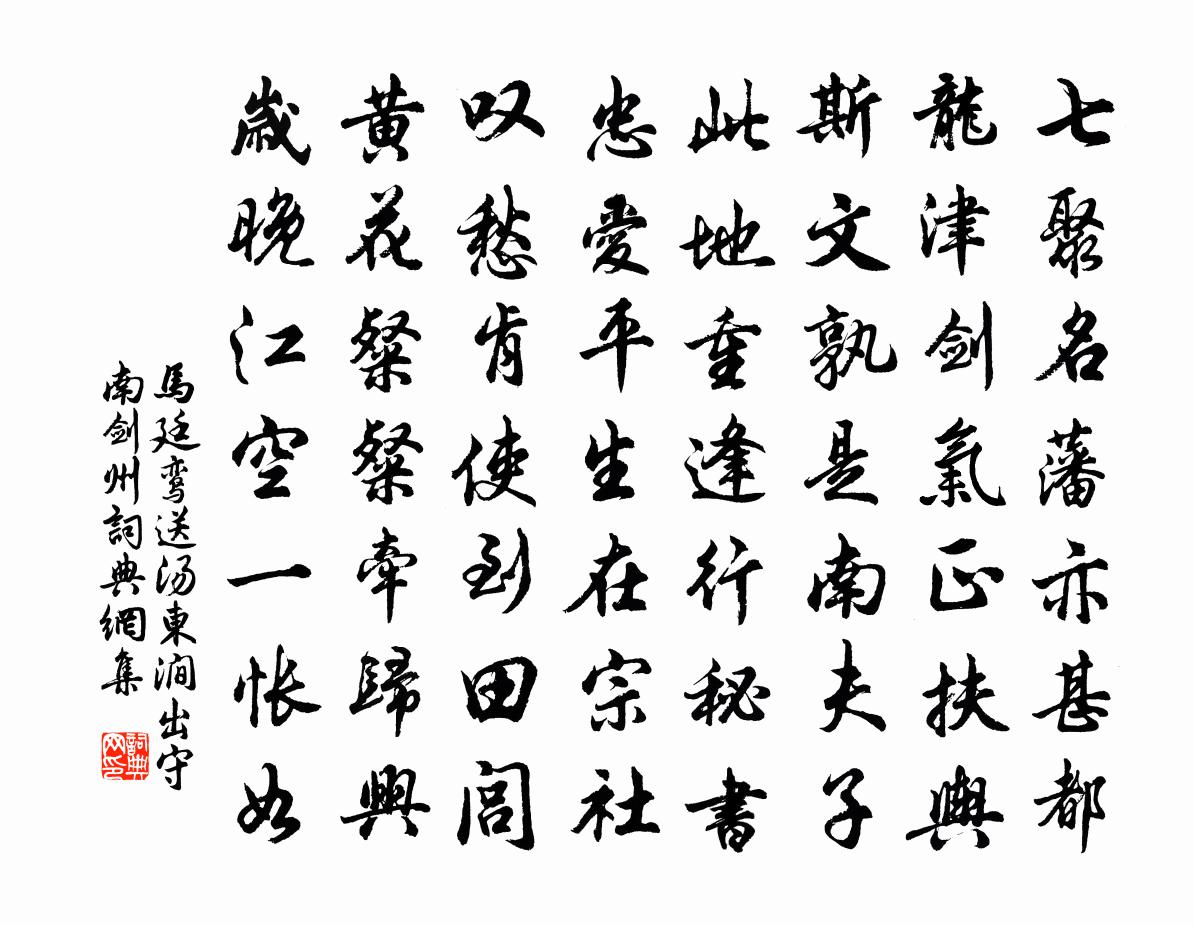 七聚名藩亦甚都
龍津劍氣正扶輿
斯文孰是南夫子
此地重逢行秘書
忠愛平生在宗社
叹愁肯使到田閭
黄花粲粲牽歸興
歲晚江空一悵如
馬廷鸾送汤東澗出守
南劍州詞典網集
詞典网印